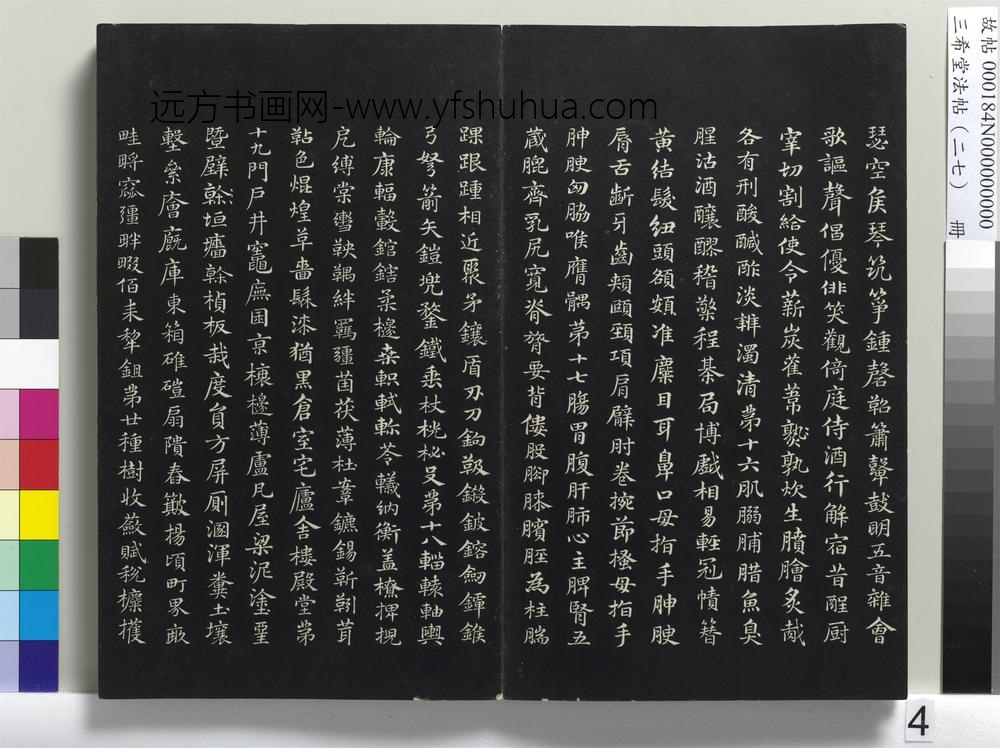 瑟空侯琴筑箏鍾磬鞀簫鼙鼓明五音雜會
歌謳聲倡優俳笑觀倚庭侍酒行觧宿昔酲厨
宰切割給使令薪炭萑葦孰炊生膹膾炙胾
各有刑酸醎酢淡辨濁清苐十六肌䐧脯腊魚臭
腥沽酒釀醪稽槩程棊局博戲相易輕冠幘簪
黄結髮紐頭頟頞准麋目耳鼻口母指手胂腴
脣舌齗牙齒頰頤頸項肩臂肘卷捥節搔母指手
胂腴匈脇喉膺髃苐十七腸胃腹肝肺心主脾腎五
蔵膍齊乳尻寬脊膂要背僂股脚膝臏脛為柱腨
踝跟踵相近聚矛鑲盾刃刀鈎鈒鏦鈹鎔劒鐔鍭
弓弩箭矢鎧兜鍪鐵垂杖梲柲殳苐十八輜轅軸輿
輪康輻轂輨鎋柔檼桑軹軾軫苓轙納衡盖橑椑棿
戹縛棠轡鞅鞨絆羈彊茵茯薄杜鑣錫靳茸
色焜煌草嗇髹漆猶黒倉室宅廬舍樓殿堂苐
十九門戶井竈廡囷京榱檼薄廬凡屋梁泥塗堊
曁壁榦垣墻榦楨板栽度負方屏厠溷渾糞土壤
墼絫廥廐庫東箱碓磑扇隤舂簸楊頃町界畝
畦畔畷佰耒犂鉏苐廿種樹收斂賦稅攈穫
远方书画网-www.yfshuhua.com
故帖 000184N000000000
三希堂法帖（二七） 冊
4